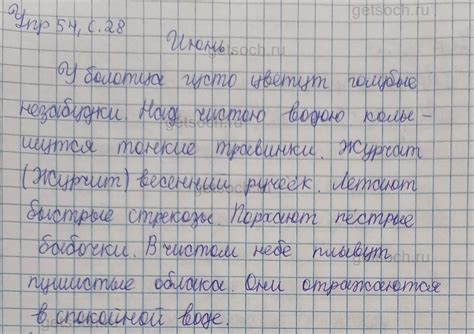 Упр 54, с. 28
getsoch.ru
Июнь.
getsoch.ru
У болотца густо цветут голубые
незабудки. Над чистою водою колы-
getsoch.ru
шутся тонкие травинки. Журчат
(Журчит) весенний ручеёк. Летают
быстрые стрекозы. Порхают пёстрые
бабочки. В чистом небе плывут
пушистые облака. Они отражаются
в спокойной воде.